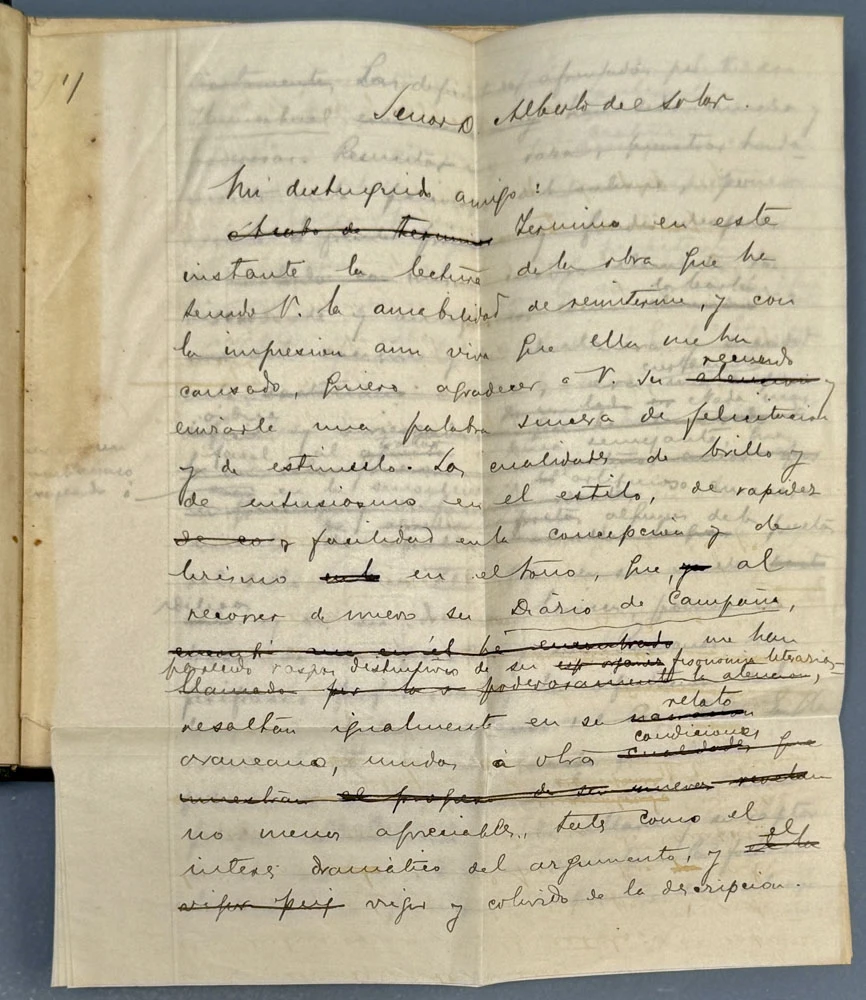 Señor D. Alberto del Solar.
Mi distinguido amigo:
Acabo de terminar Termino en este
instante la lectura de la obra que ha
tenido V. la amabilidad de remitirme, y con
la impresion aun viva que ella me ha
recuerdo
causado, quiero agradecer a V. su atencion y
enviarle una palabra sincera de felicitacion
y de estímulo. Las cualidades de brillo y
de entusiasmo en el estilo, de rapidez
de co y facilidad en la concepcion y de
lirismo en el tono, que, ya al
recorrer de nuevo su Diário de Campaña,
encontré que en él he encontrado me han
parecido rasgos distintivos de su fisonomia literaria,
llamado por lo poderosamente la atencion,
relato
resaltan igualmente en su narracion
condiciones
araucano, unidas á otras cualidades que
muestran el progreso de ser revelan
no menos apreciables, tales como el
el
interes dramático del argumento, y
vigor y colorido de la descripcion.